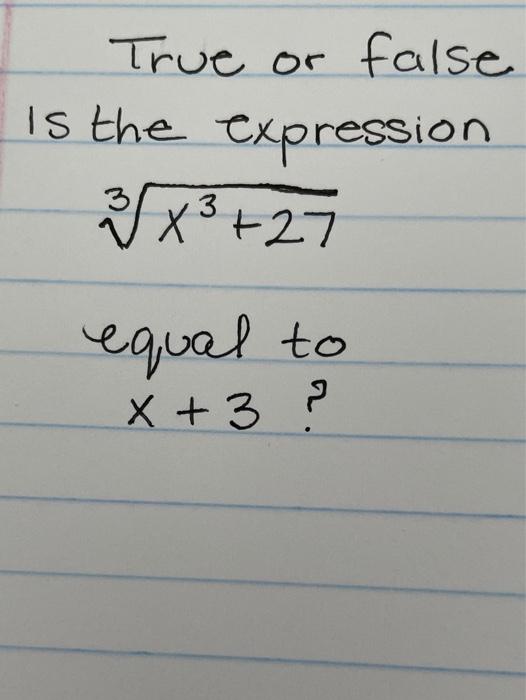 True or false
Is the expression
∛(x³+27)
equal to
x + 3 ?